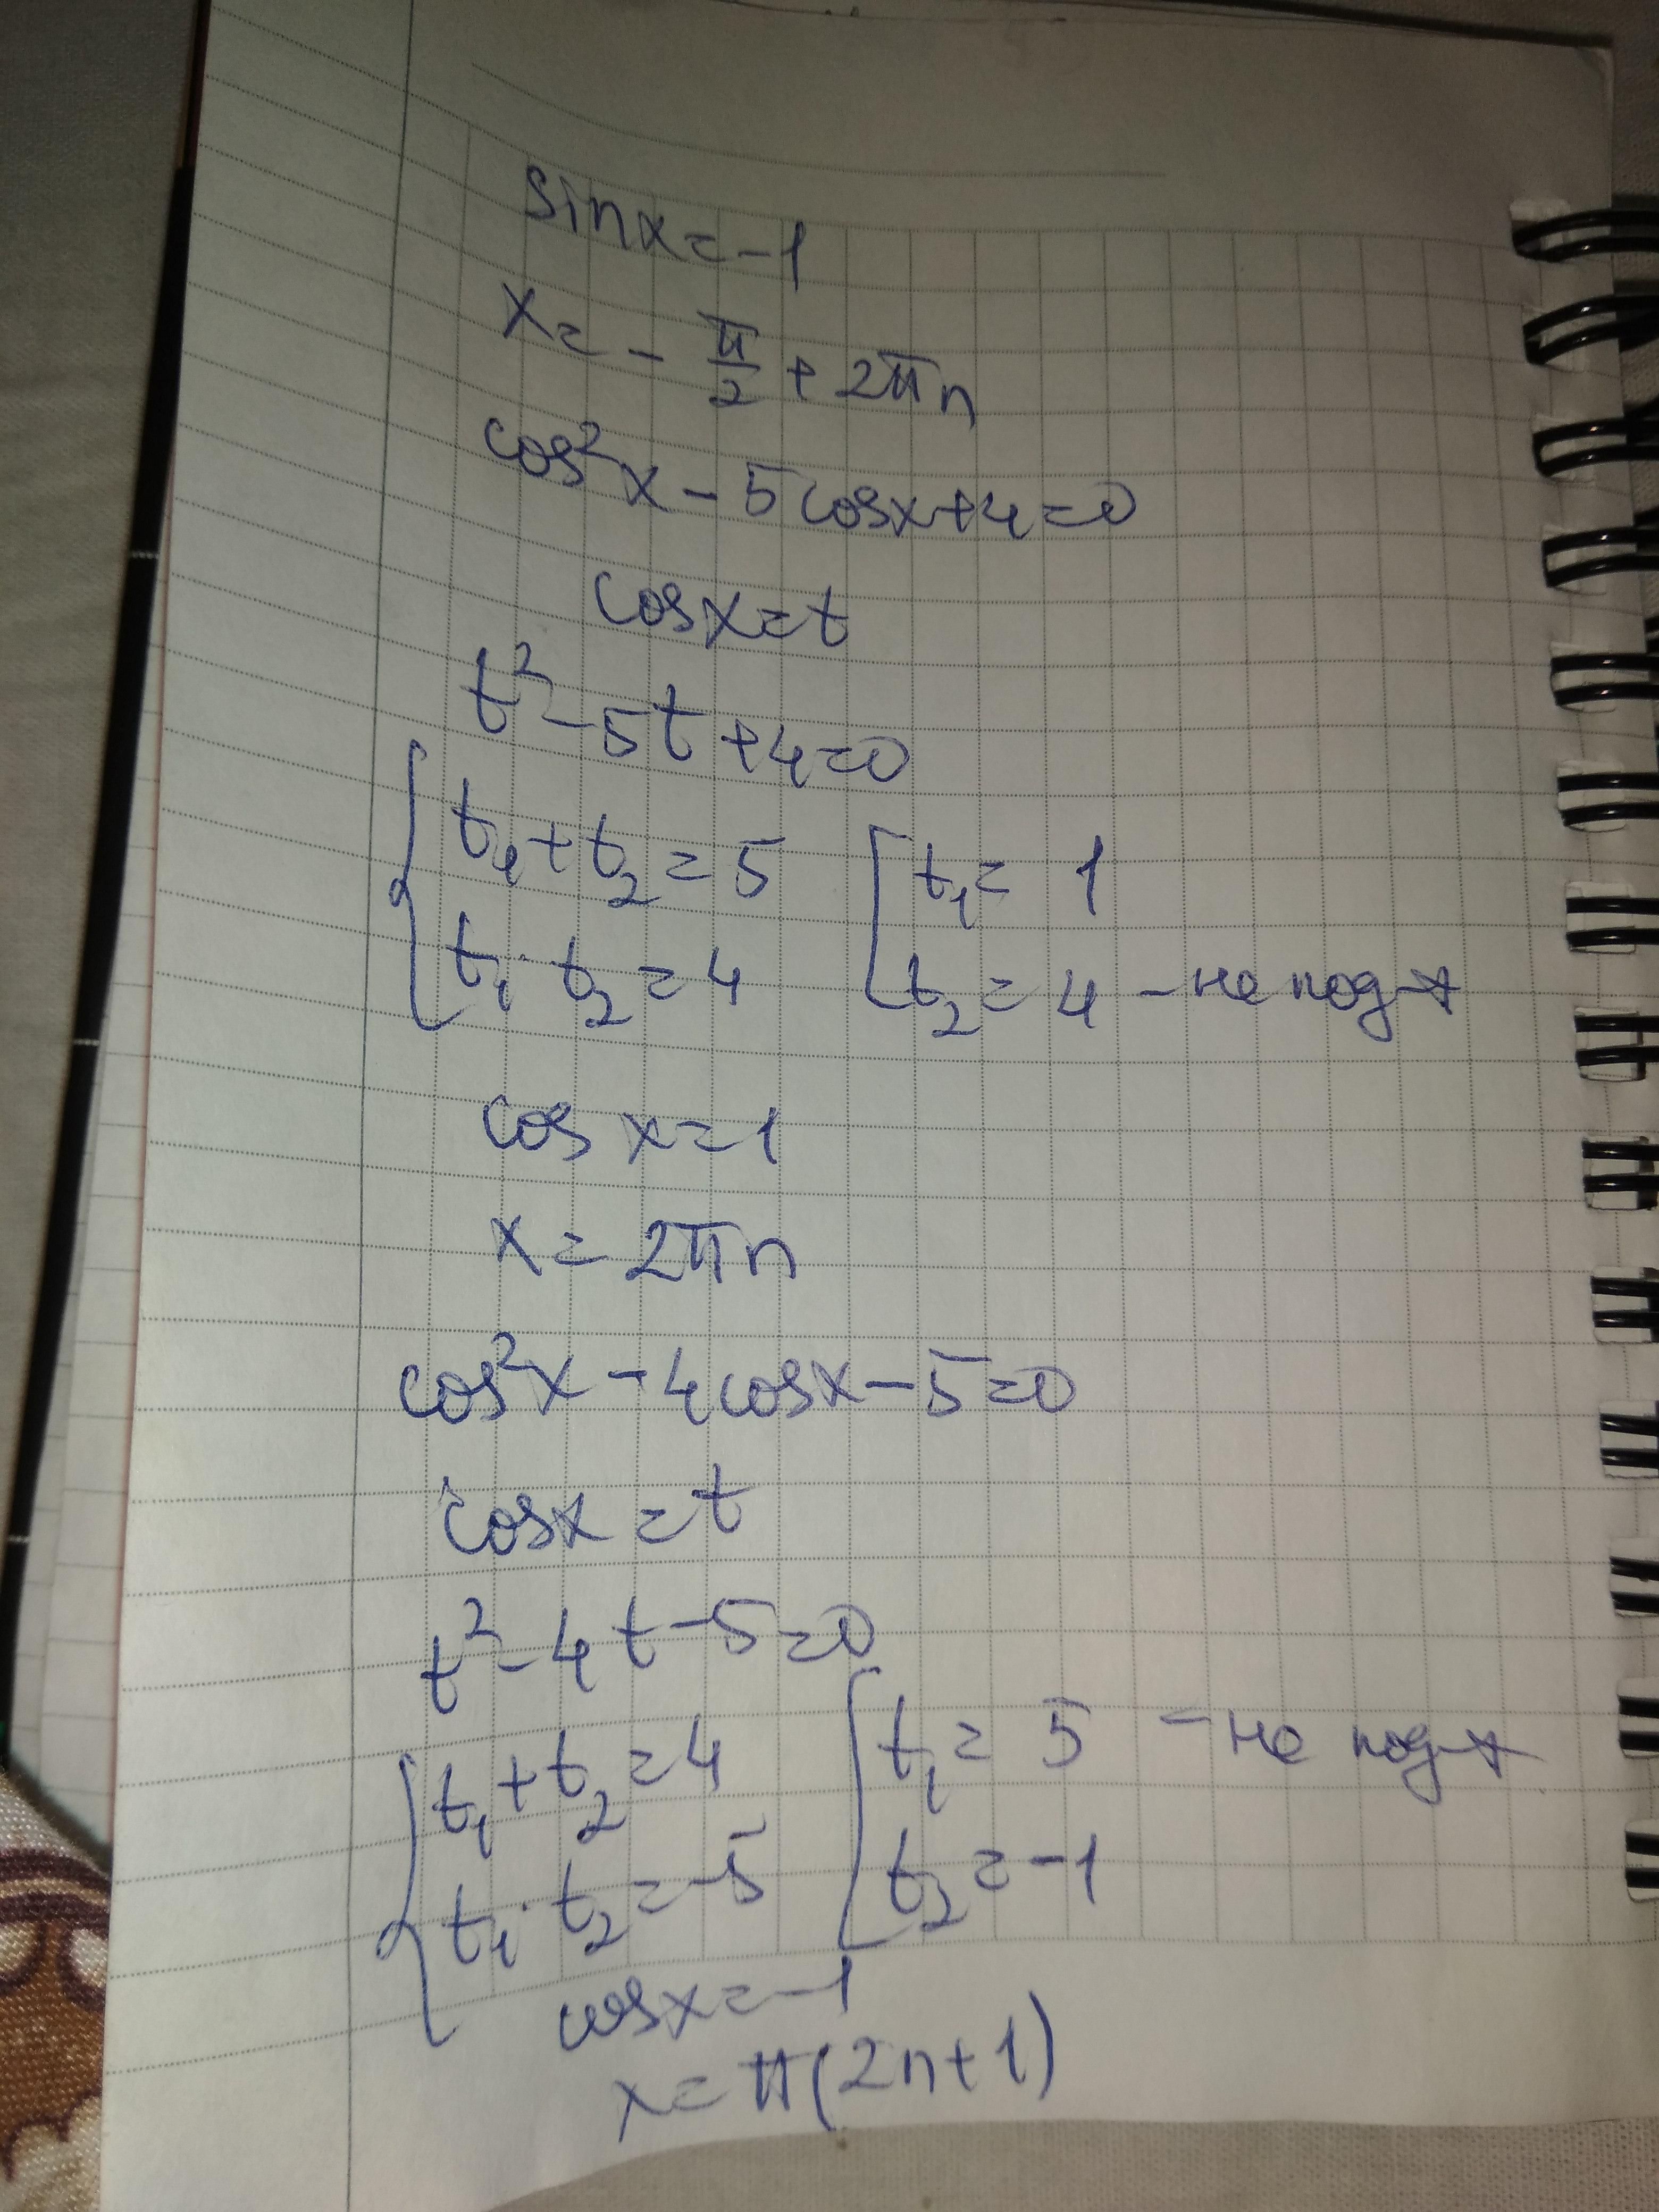 sinx=-1
x=-π/2+2πn
cos²x-5cosx+4=0
cosx=t
t²-5t+4=0
{t₁+t₂=5 [t₁=1
{t₁·t₂=4 [t₂=4-не под-х
cos x=1
x=2πn
cos²x-4cosx-5=0
cosx=t
t²-4t-5=0
{t₁+t₂=4 [t₁=5 -не под-х
{t₁·t₂=-5 [t₂=-1
cosx=-1
x=π(2n+1)